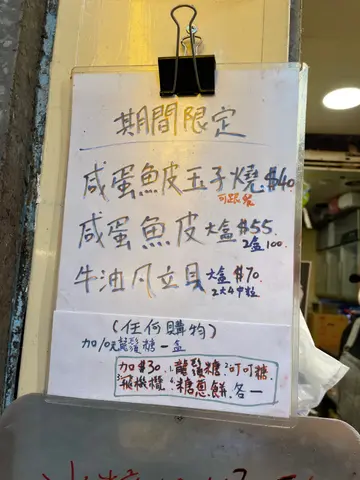 期間限定
咸蛋魚皮玉子燒 $40
可跟餐
咸蛋魚皮 大盒 $55.
2盒100
牛油凡立貝 大盒 $70.
(任何購物)
加10元龍鬚糖一盒
加$30. 1.龍鬚糖 2.叮叮糖.
3.飛機欖. 4.糖蔥餅. 各一